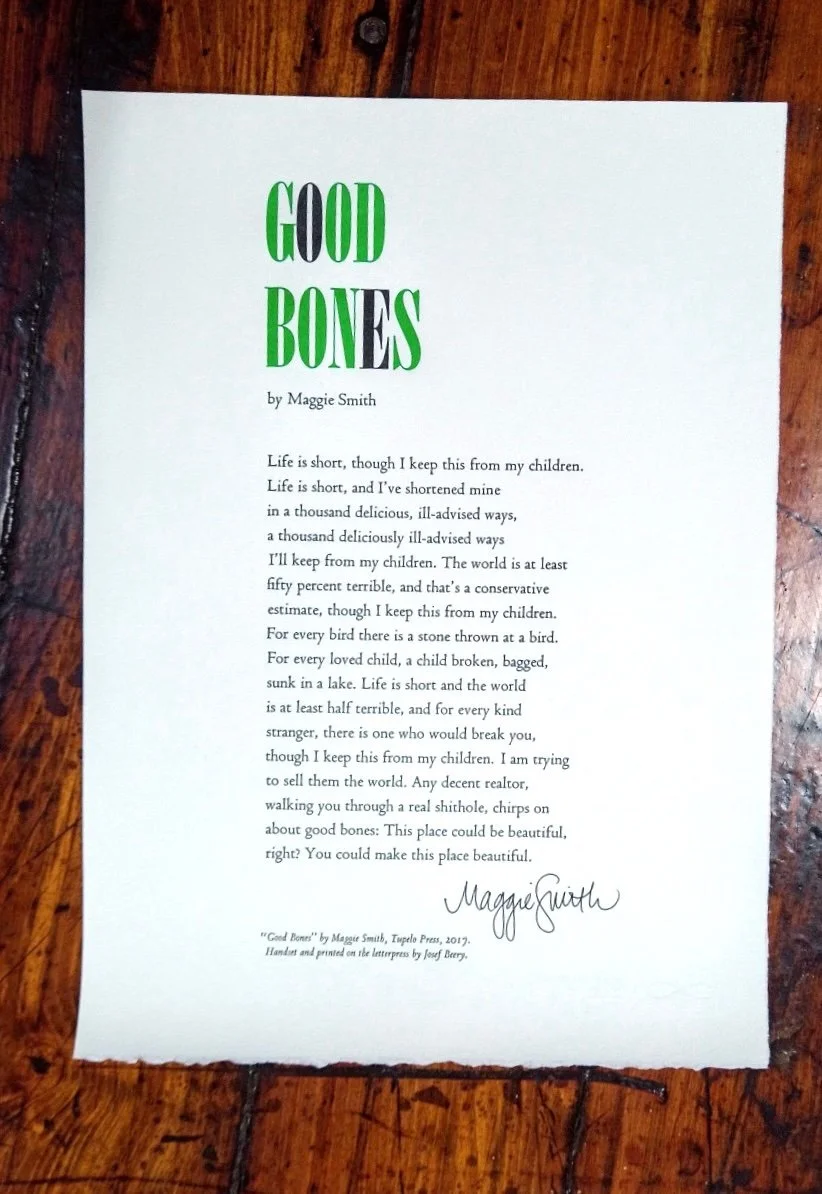 GOOD
BONES
by Maggie Smith
Life is short, though I keep this from my children.
Life is short, and I've shortened mine
in a thousand delicious, ill-advised ways,
a thousand deliciously ill-advised ways
I'll keep from my children. The world is at least
fifty percent terrible, and that's a conservative
estimate, though I keep this from my children.
For every bird there is a stone thrown at a bird.
For every loved child, a child broken, bagged,
sunk in a lake. Life is short and the world
is at least half terrible, and for every kind
stranger, there is one who would break you,
though I keep this from my children. I am trying
to sell them the world. Any decent realtor,
walking you through a real shithole, chirps on
about good bones: This place could be beautiful,
right? You could make this place beautiful.
Maggie Smith
"Good Bones" by Maggie Smith, Tupelo Press, 2017.
Handset and printed on the letterpress by Josef Beery.